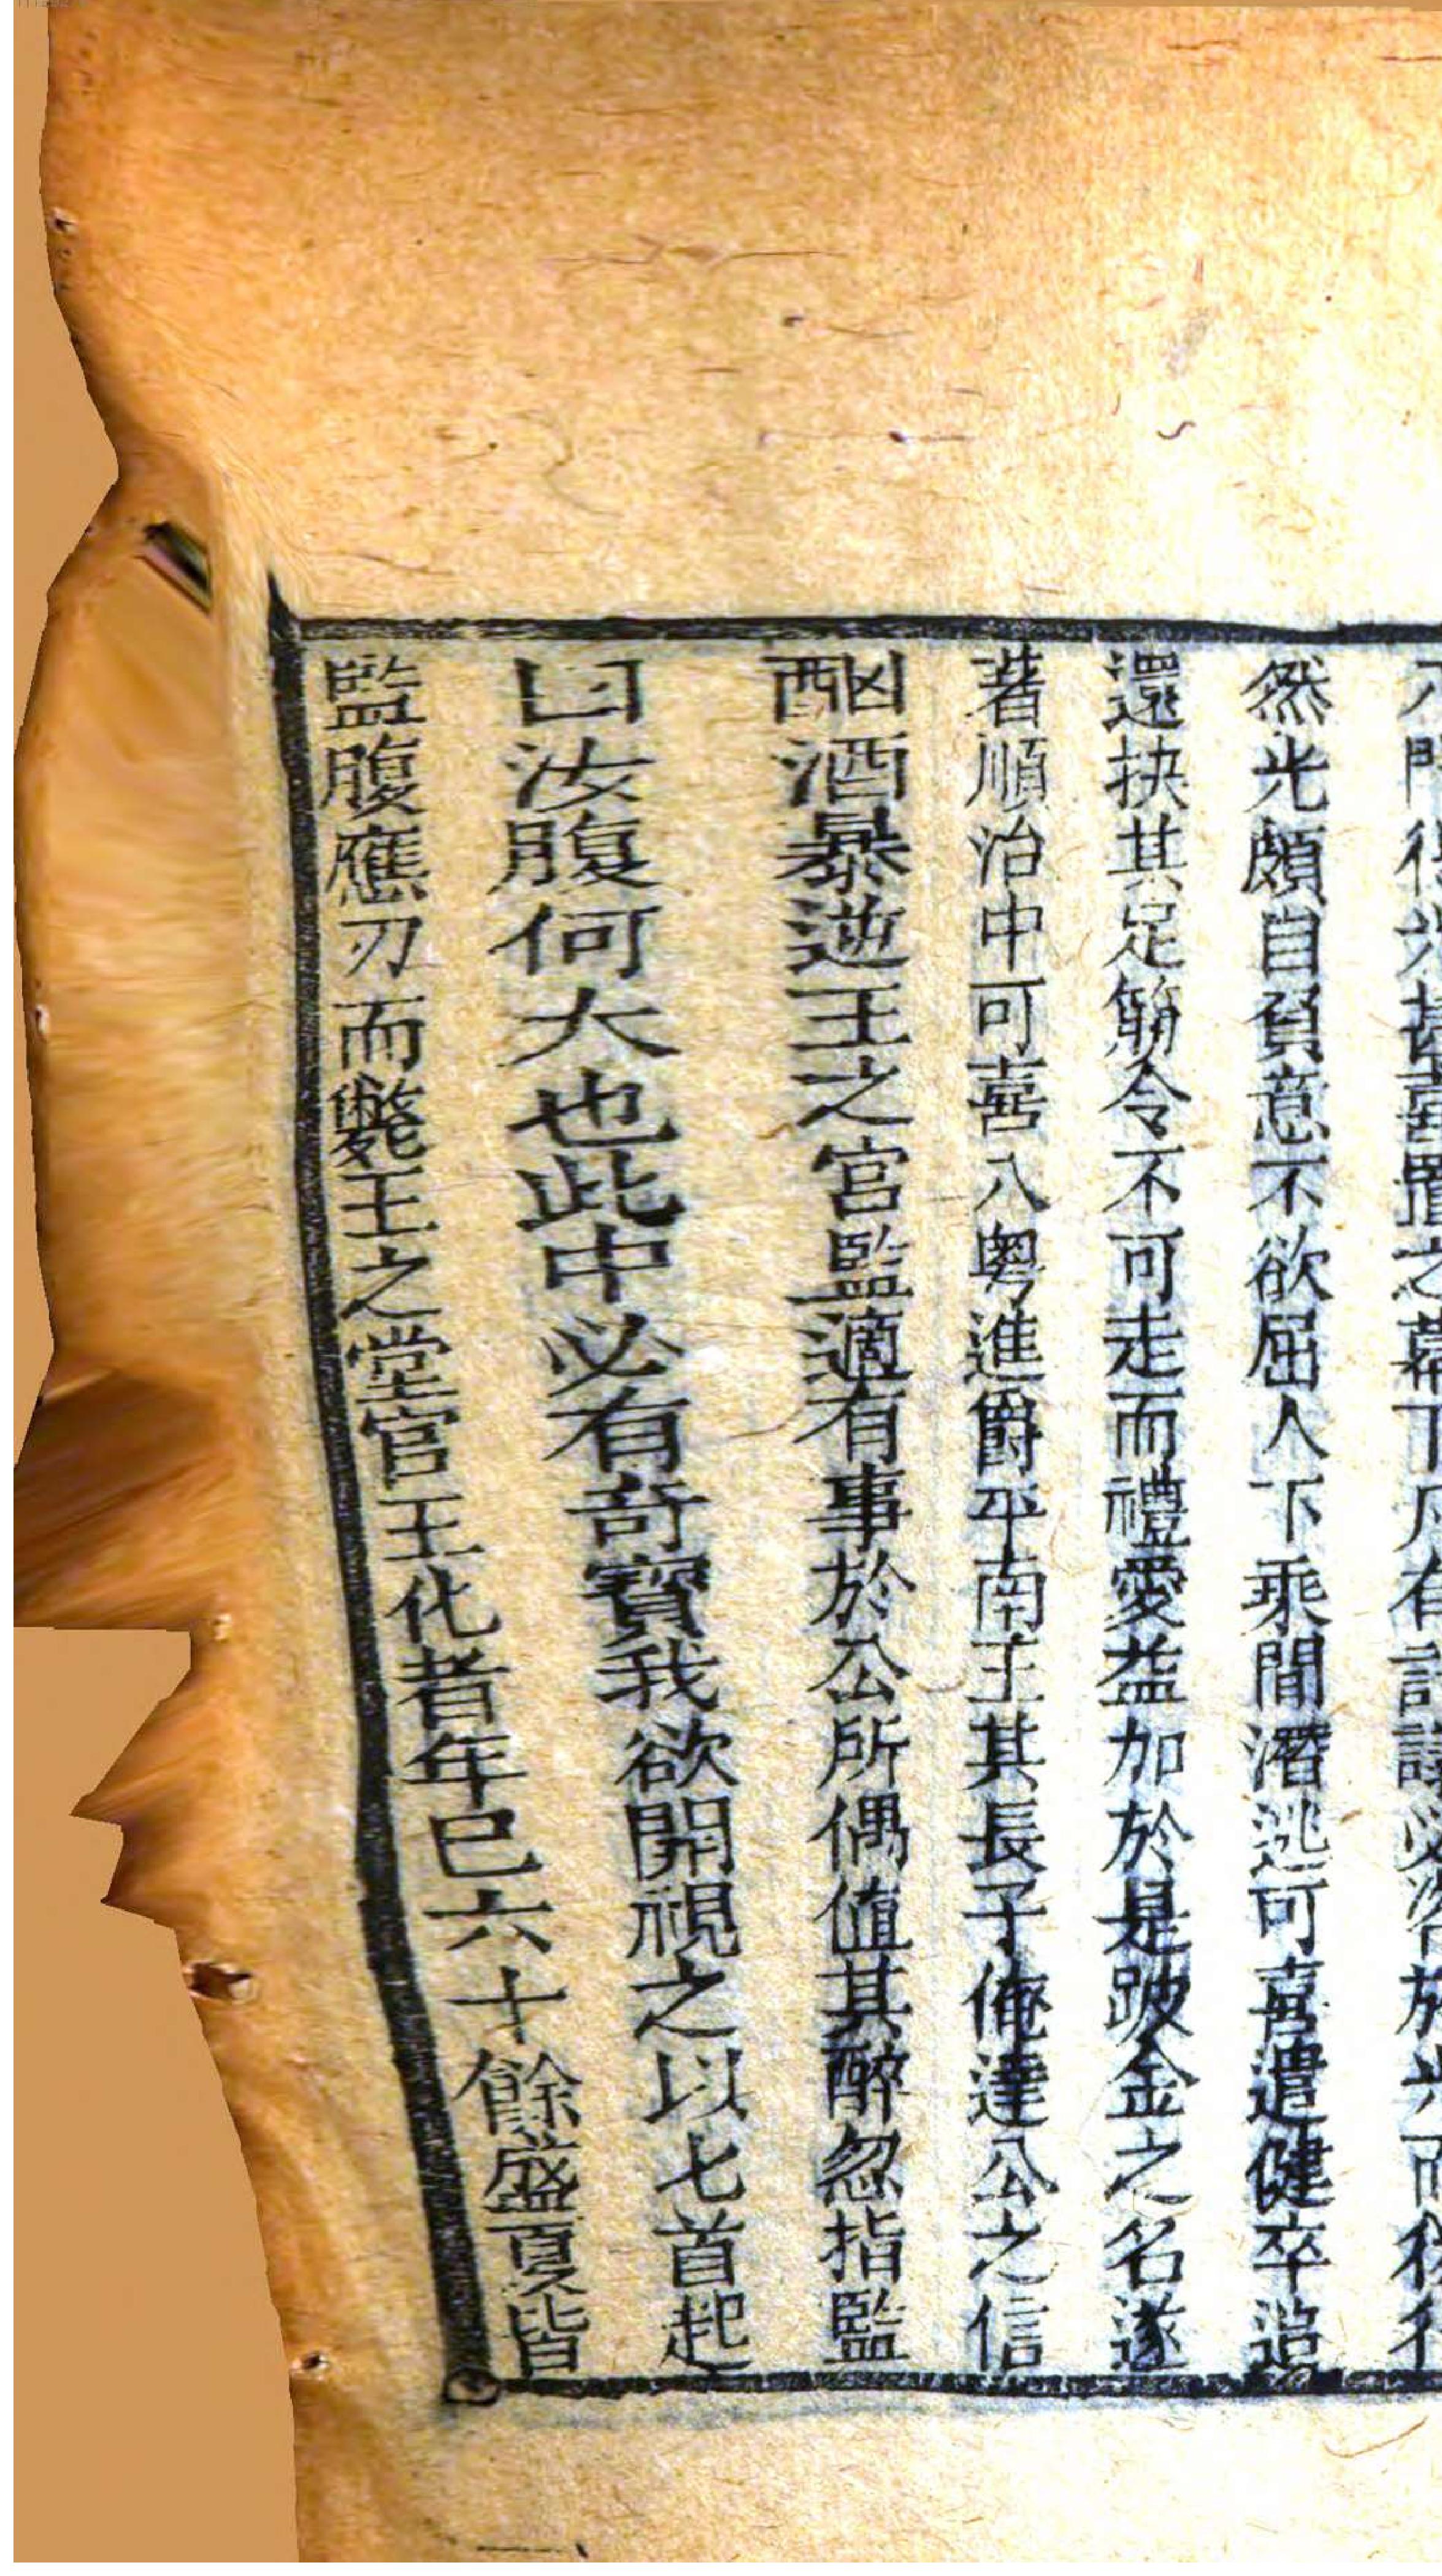 然光頗自負意不欲屈人下乘間潛逃可喜遣健卒追
還抉其足筋令不可走而禮愛益加於是跛金之名遂
著順治中可喜入粤進爵平南王其長子俺達公之信
酗酒暴逆王之宮監適有事於公所偶值其醉忽指監
曰汝腹何大也此中必有奇寶我欲開視之以匕首起
監腹應刃而斃王之堂官王化者年已六十餘盛夏皆